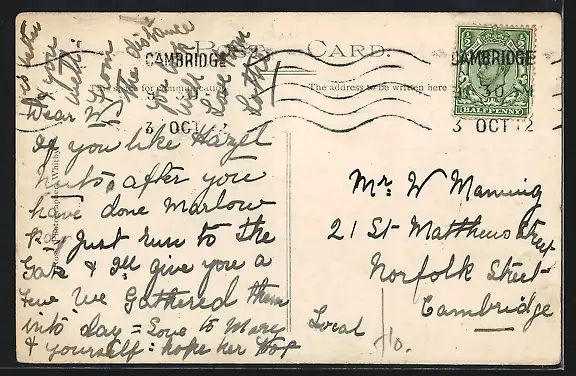 POST CARD.
The space for communication
The address to be written here
CAMBRIDGE
3 OCT 12
CAMBRIDGE
3 30
3 OCT 12
HALFPENNY
Dear W
If you like Hazel
nuts, after you
have done Marlow
Just run to the
Gate & I'll give you a
Few. We Gathered them
into day = Love to Mary
& yourself: hope her
is
& you
From
the distance
will
Love from
Mr. W Manning
21 St Matthews Street
Norfolk Street
Cambridge
Local
Photographer, Whitby